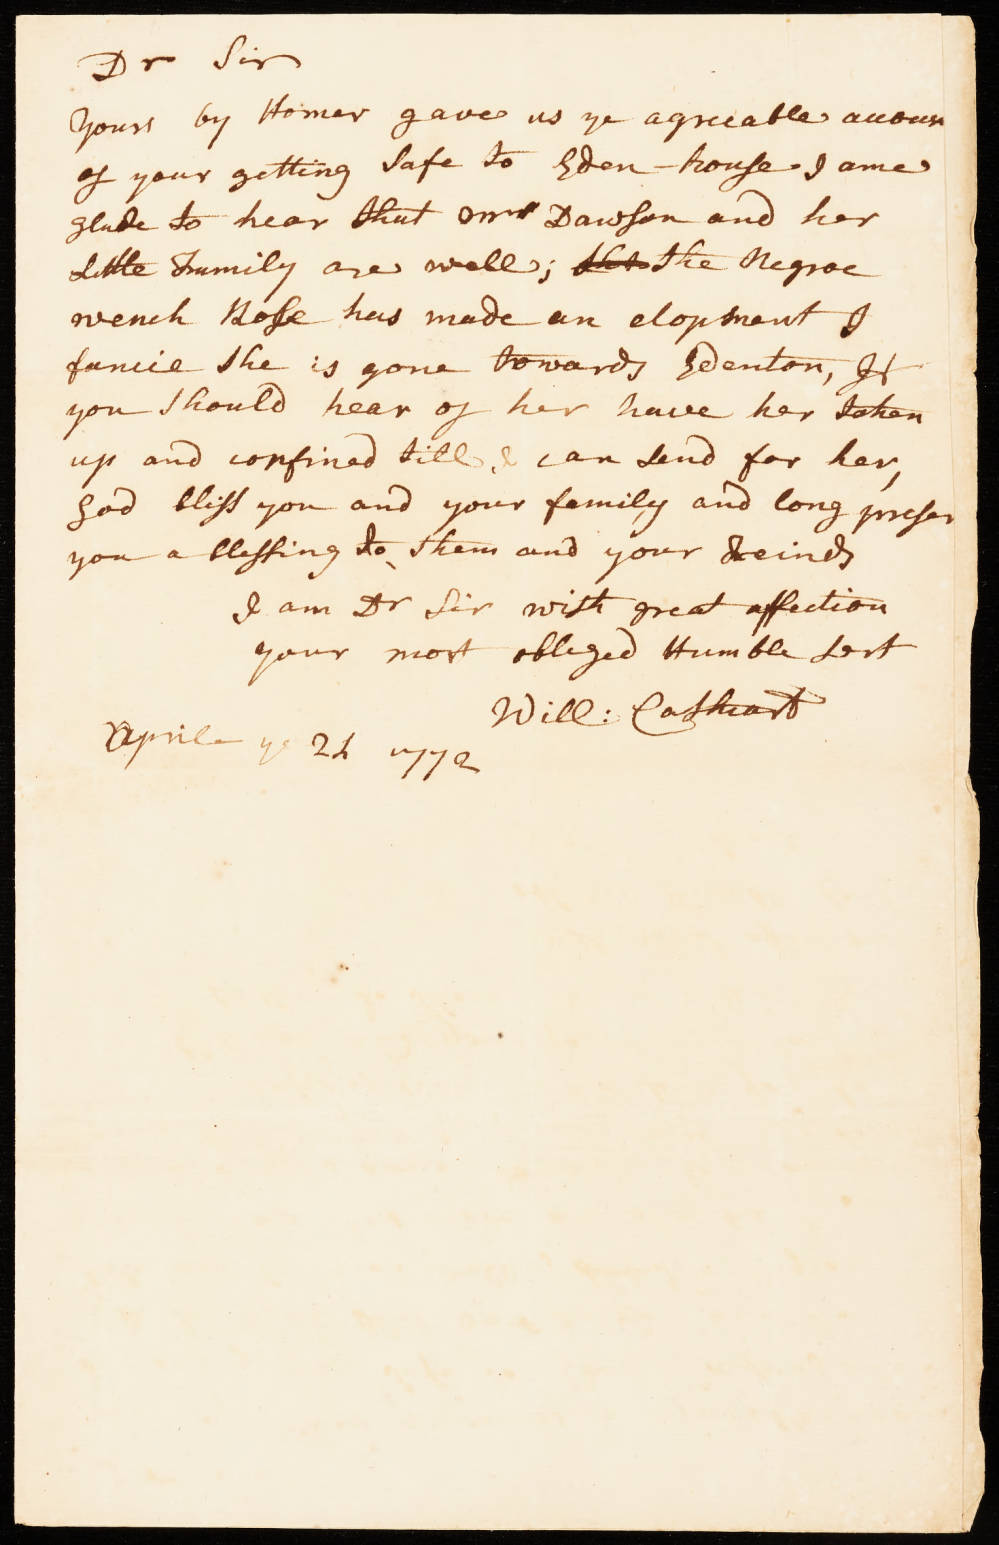 Dr Sir
Yours by Homer gave us ye agreeable accoun
of your getting Safe to Eden-house I ame
glade to hear that Mrs Dawson and her
Little Family are well; the Negroe
wench Rose has made an elopment I
fancie She is gone towards Edenton, If
you Should hear of her have her taken
up and confined till I can Send for her,
God bliss you and your family and long preser
you a blessing to them and your freinds
I am Dr Sir with great affection
your most obleged Humble Sert
Will: Cathcart
Aprile ye 24 1772